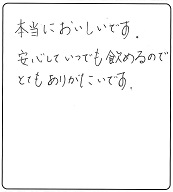 本当においしいです.
安心していつでも飲めるので
とてもありがたいです.